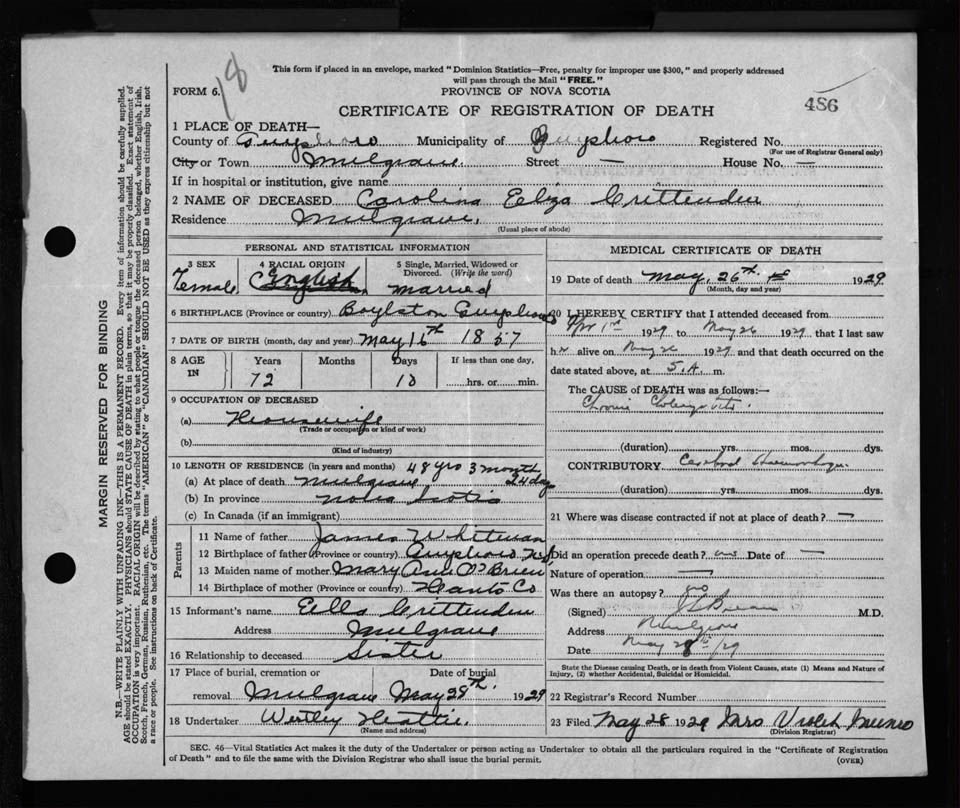 18
This form if placed in an envelope, marked "Dominion Statistics—Free, penalty for improper use $300," and properly addressed
will pass through the Mail "FREE."
FORM 6.
PROVINCE OF NOVA SCOTIA
CERTIFICATE OF REGISTRATION OF DEATH
486
1 PLACE OF DEATH—
County of Guysboro Municipality of Guysboro Registered No.
(For use of Registrar General only)
City or Town Mulgrave. Street — House No. —
If in hospital or institution, give name
2 NAME OF DECEASED Carolina Eliza Crittenden
Residence Mulgrave.
(Usual place of abode)
PERSONAL AND STATISTICAL INFORMATION
3 SEX
Female
4 RACIAL ORIGIN
English
5 Single, Married, Widowed or
Divorced. (Write the word)
Married
6 BIRTHPLACE (Province or country) Boylston Guysboro
7 DATE OF BIRTH (month, day and year) May 16th 1857
8 AGE IN
Years Months Days If less than one day,
72 10 hrs. or min.
9 OCCUPATION OF DECEASED
(a) Housewife
(Trade or occupation or kind of work)
(b)
(Kind of industry)
10 LENGTH OF RESIDENCE (in years and months) 48 yrs 3 month
(a) At place of death Mulgrave 24 day
(b) In province Nova Scotia
(c) In Canada (if an immigrant)
Parents
11 Name of father James Whitman
12 Birthplace of father (Province or country) Guysboro N.S.
13 Maiden name of mother Mary Ann O'Brien
14 Birthplace of mother (Province or country) Hants Co
15 Informant's name Ella Crittenden
Address Mulgrave
16 Relationship to deceased Sister
17 Place of burial, cremation or Date of burial
removal Mulgrave May 28th. 1929
18 Undertaker Westley Hattie.
(Name and address)
MEDICAL CERTIFICATE OF DEATH
19 Date of death May, 26th 1929
(Month, day and year)
20 I HEREBY CERTIFY that I attended deceased from
Apr 1st 1929 to May 26 1929 that I last saw
her alive on May 26 1929 and that death occurred on the
date stated above, at 5. A. m.
The CAUSE of DEATH was as follows:—
Chronic
(duration) yrs. mos. dys.
CONTRIBUTORY Cerebral Haemorrhage
(duration) yrs. mos. dys.
21 Where was disease contracted if not at place of death? —
Did an operation precede death? no Date of —
Nature of operation —
Was there an autopsy? no
(Signed) M.D.
Address Mulgrave
Date May 28th/29
State the Disease causing Death, or in death from Violent Causes, state (1) Means and Nature of
Injury, (2) whether Accidental, Suicidal or Homicidal.
22 Registrar's Record Number
23 Filed May 28 1929 Mrs Violet
(Division Registrar)
SEC. 46—Vital Statistics Act makes it the duty of the Undertaker or person acting as Undertaker to obtain all the particulars required in the "Certificate of Registration
of Death" and to file the same with the Division Registrar who shall issue the burial permit.
(OVER)
MARGIN RESERVED FOR BINDING
N.B.—WRITE PLAINLY WITH UNFADING INK—THIS IS A PERMANENT RECORD. Every item of information should be carefully supplied.
AGE should be stated EXACTLY. PHYSICIANS should STATE CAUSE OF DEATH in plain terms, so that it may be properly classified. Exact statement of
OCCUPATION is very important. RACIAL ORIGIN will be described by stating to what people or tongue the deceased person belonged, whether English, Irish,
Scotch, French, German, Russian, Ruthenian, etc. The terms "AMERICAN" or "CANADIAN" SHOULD NOT BE USED as they express citizenship but not
a race or people. See instructions on back of Certificate.